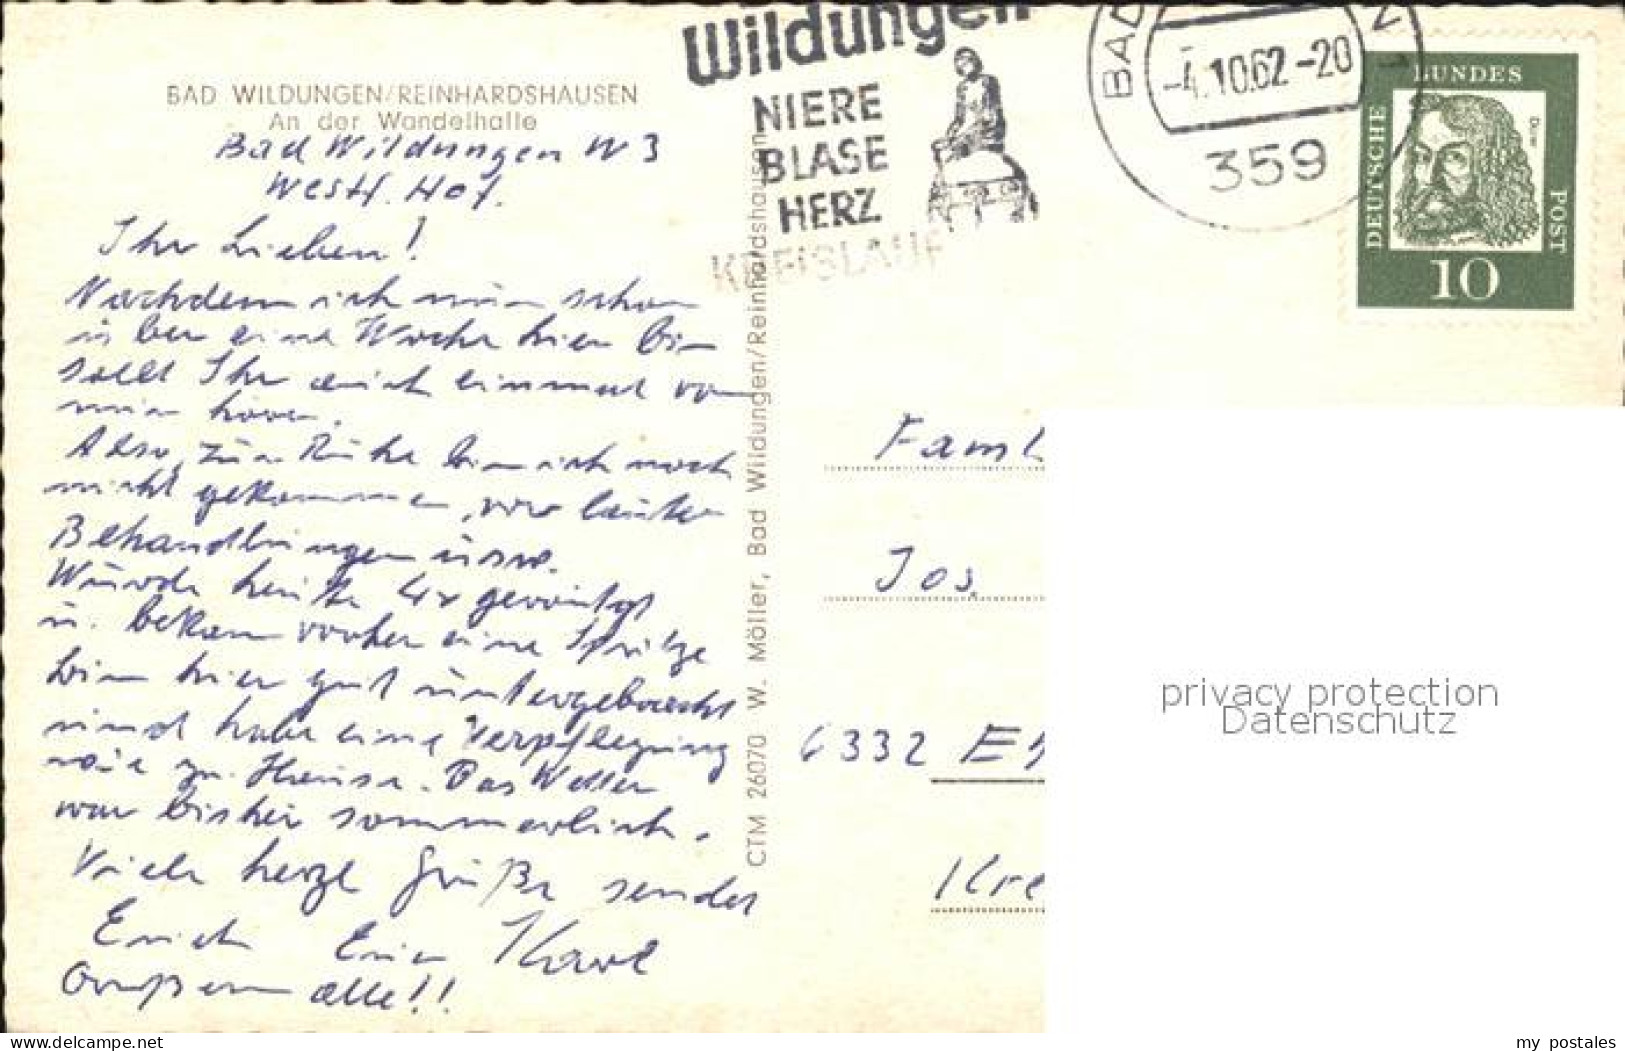 BAD WILDUNGEN/REINHARDSHAUSEN
An der Wandelhalle
Bad Wildungen W 3
Westf. Hof.
Ihr Lieben!
Nachdem ich nun schon
über eine Woche hier bin
sollt Ihr auch einmal von
mir hören.
Also, zur Ruhe bin ich noch
nicht gekommen, vor lauter
Behandlungen usw.
Wurde heute 4x geröntgt
u. bekam vorher eine Spritze
bin hier gut untergebracht
und habe eine Verpflegung
wie zu Hause. Das Wetter
war bisher sommerlich.
Viele herzl Grüße sendet
Euich Euer Karl
Grüßen alle!!
CTM 26070 W. Möller, Bad Wildungen/Reinhardshausen
Wildungen
NIERE
BLASE
HERZ
KREISLAUF
BAD
-4.10.62-20
N 1
359
DEUTSCHE
BUNDES
POST
Dürer
10
Faml
Jos.
6332
Kre
privacy protection
Datenschutz
www.delcampe.net
my_postales